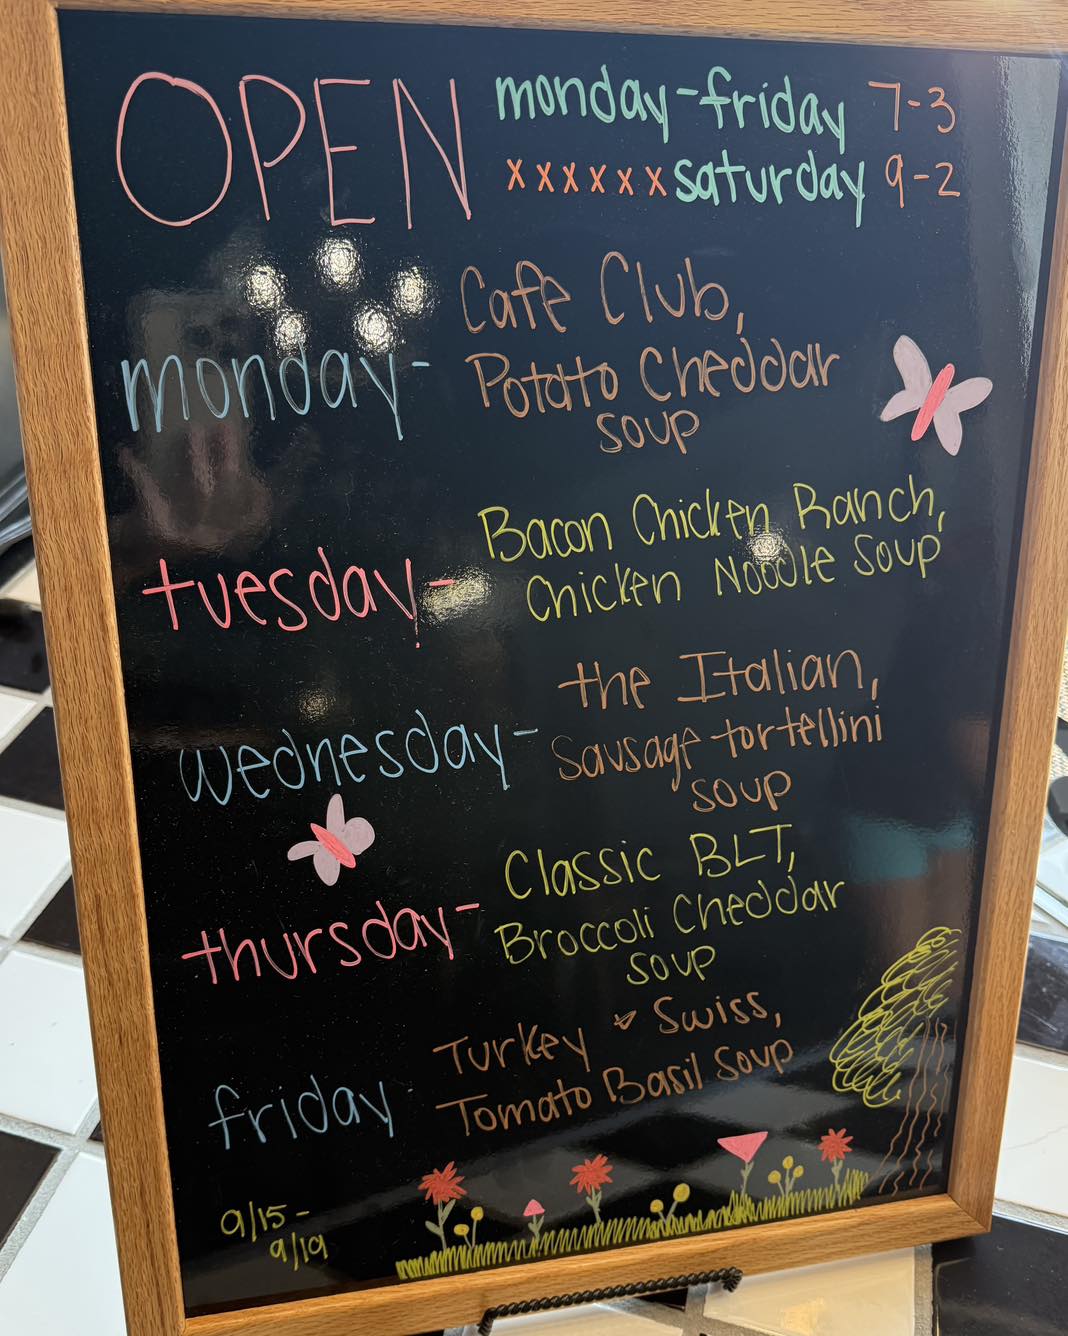 OPEN monday-friday 7-3
xxxxxx saturday 9-2
Cafe Club,
monday- Potato Cheddar
soup
Bacon Chicken Ranch,
tuesday- Chicken Noodle Soup
the Italian,
wednesday- Sausage tortellini
soup
Classic BLT,
thursday- Broccoli Cheddar
soup
Turkey & Swiss,
friday- Tomato Basil Soup
9/15-
9/19